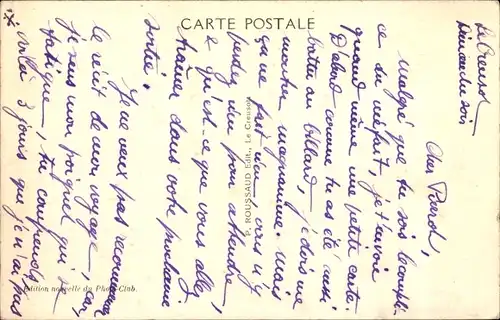 CARTE POSTALE
P. ROUSSAUD Edit., Le Creusot
Edition nouvelle du Photo-Club.
Le Creusot
Dimanche soir
Cher Pierrot,
Malgré que tu sois le complice
ce du méfait, je t'envoie
quand même une petite carte.
D'abord comme tu as été aussi
battu au billard, je dois me
montrer magnanime. Mais
ça ne fait rien, vous n'y
perdez rien pour attendre,
& qu'est-ce que vous allez
traîner dans votre prochaine
sortie.
Je ne veux pas recommencer
le récit de mon voyage, car
je suis mon poignet qui se
fatigue, tu comprends
voilà 3 jours que je n'ai pas